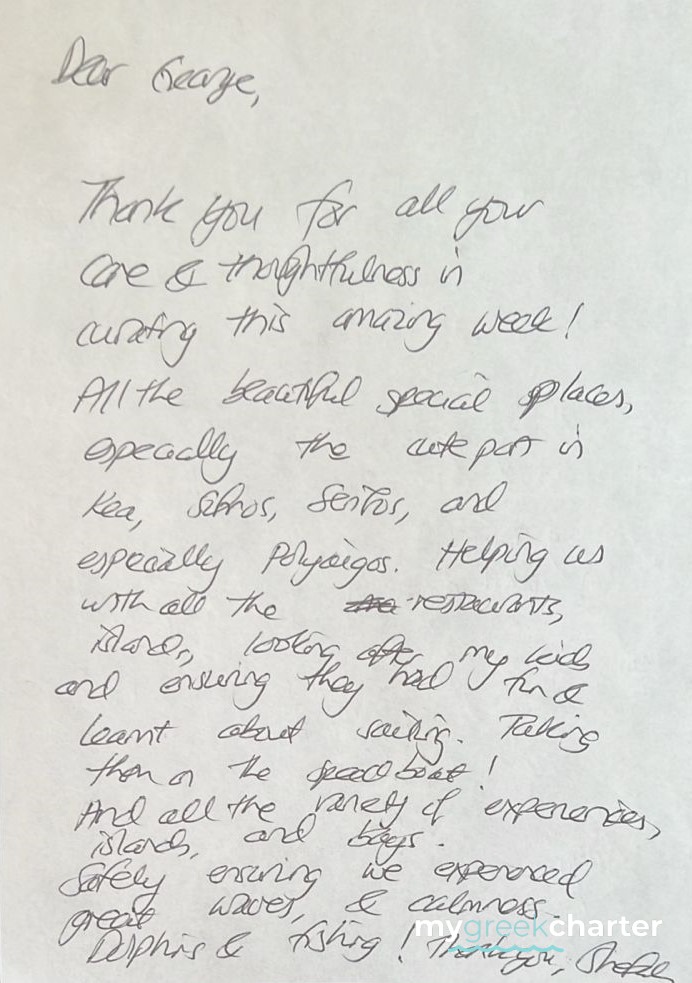 Dear George,
Thank you for all your
care & thoughtfulness in
curating this amazing week!
All the beautiful special places,
especially the cute port in
Kea, Sifnos, Serifos, and
especially Polyaigos. Helping us
with all the restaurants,
islands, looking after my kids
and ensuring they had fun &
learnt about sailing. Taking
them on the speed boat!
And all the variety of experiences,
islands, and bays.
Safely ensuring we experienced
great waves, & calmness.
Dolphins & fishing! Thank you,
mygreekcharter